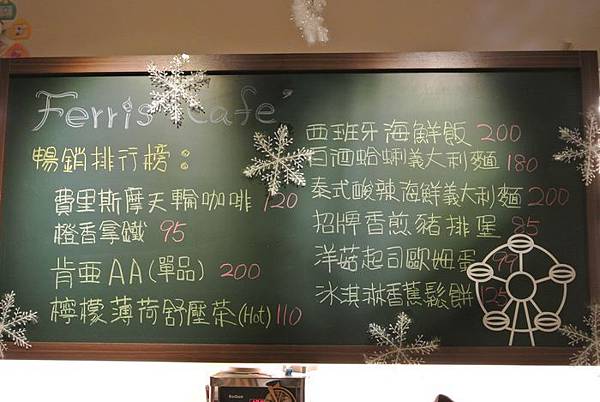 Ferris Café
暢銷排行榜：
費里斯摩天輪咖啡 120
橙香拿鐵 95
肯亞AA(單品) 200
檸檬薄荷舒壓茶(Hot) 110
西班牙海鮮飯 200
白酒蛤蜊義大利麵 180
泰式酸辣海鮮義大利麵 200
招牌香煎豬排堡 85
洋菇起司歐姆蛋 99
冰淇淋香蕉鬆餅 125